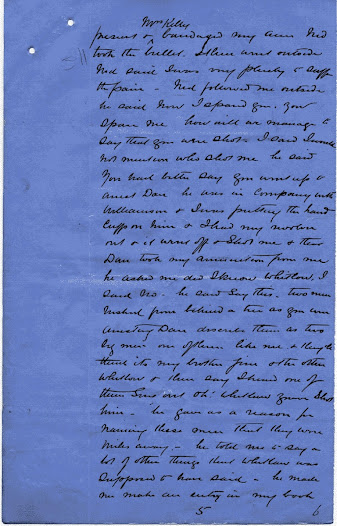 Mrs Kelly
present & bandaged my arm Ned
took the bullet. I then went outside
Ned said I was my plenty to suff
the pain - Ned followed me outside
he said Now I spared you. You
spare me. how will we manage to
say that you were shot. I said I would
not mention who shot me he said
You had better say you went up to
arrest Dan he was in Company with
Williamson & I was putting the hand
Cuffs on him & I had my revolver
out & it went off & Shot me & then
Dan took my ammunition from me
he asked me did I know Whitlow. I
said No. he said Say this. two men
rushed from behind a tree as you were
arresting Dan describe them as two
big men one of them like me & they'll
think its my brother Jim & the other
Whitlow & then say I heard one of
them Sing out Oh! Whitlow you've Shot
him - he gave as a reason for
naming these men that they were
miles away - he told me to say a
lot of other things that Whitlow was
supposed to have said - he made
me make an entry in my book
5 6